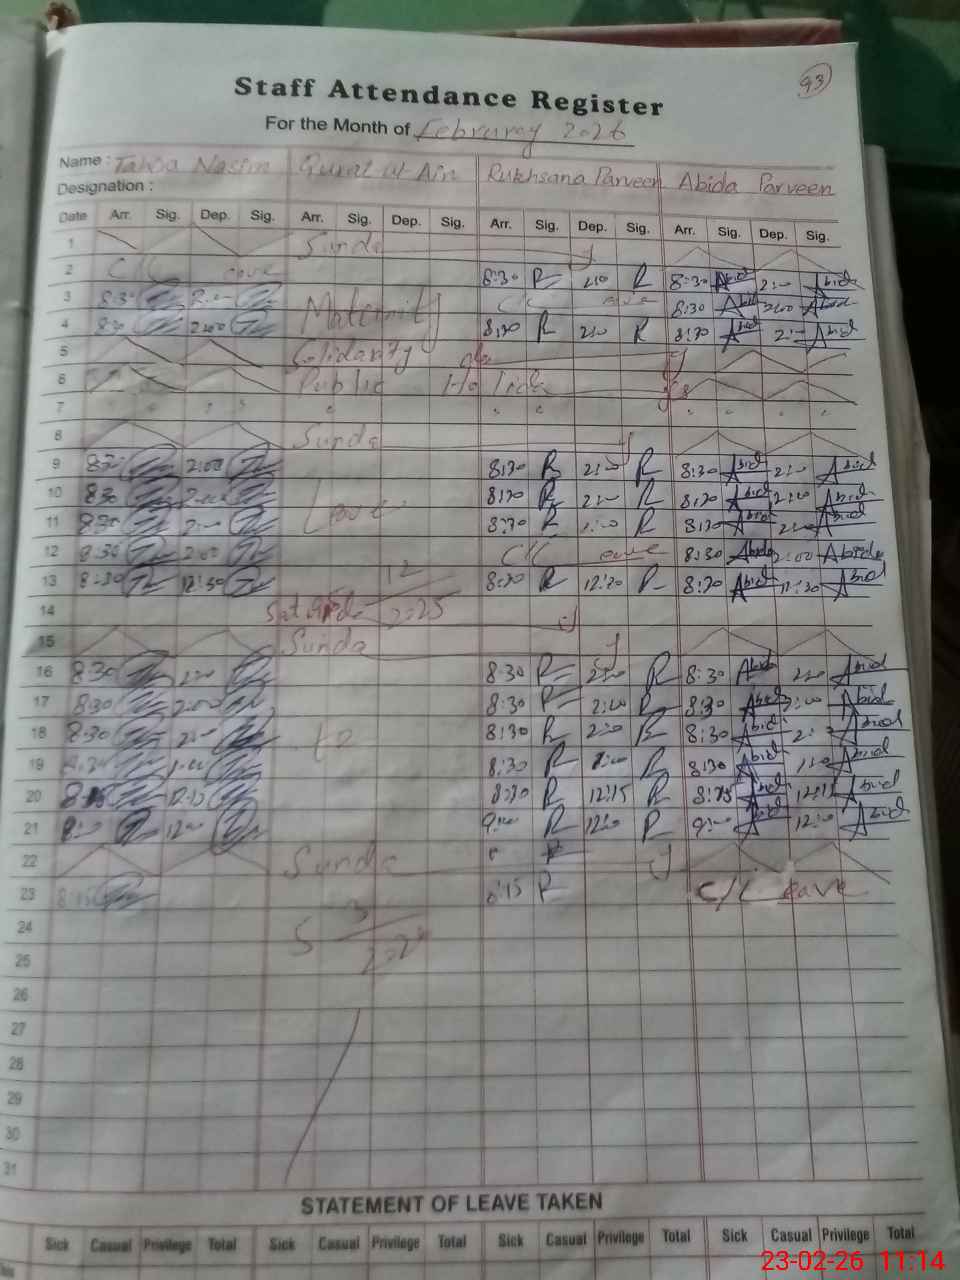 93
Staff Attendance Register
For the Month of Februray 2026
Name : Nasim Qurat ul Ain Rukhsana Parveen Abida Parveen
Designation :
Date Arr. Sig. Dep. Sig. Arr. Sig. Dep. Sig. Arr. Sig. Dep. Sig. Arr. Sig. Dep. Sig.
1 Sunday
2 C/L eave 8:30 R 2:00 R 8:30 Abid 2:00 Abid
3 8:30 Maternity C/L eave 8:30 Abid 2:00 Abid
4 8:30 2:00 8:30 R 2:00 R 8:30 Abid 2:00 Abid
5 Solidarity day
6 Public Holidays
7 " "
8 Sunday
9 8:30 2:00 8:30 R 2:00 R 8:30 Abid 2:00 Abid
10 8:30 Leave 8:30 R 2:00 R 8:30 Abid 2:00 Abid
11 8:30 2:00 8:30 R 2:00 R 8:30 Abid 2:00 Abid
12 8:30 2:00 C/L eave 8:30 Abida 2:00 Abida
13 8:30 12:30 12 8:30 R 12:30 R 8:30 Abid 12:30 Abid
14 Saturday 2-25
15 Sunday
16 8:30 2:00 8:30 R 2:00 R 8:30 Abid 2:00 Abid
17 8:30 2:00 8:30 R 2:00 R 8:30 Abid 2:00 Abid
18 8:30 2:00 to 8:30 R 2:00 R 8:30 Abid 2:00 Abid
19 8:30 R R 8:30 Abid Abid
20 8:15 12:15 8:30 R 12:15 R 8:15 Abid 12:15 Abid
21 12:00 9:00 R 12:00 R 9:00 Abid 12:00 Abid
22 Sunday R
23 8:15 8:15 R C/L eave
24 5 3
25
26
27
28
29
30
31
STATEMENT OF LEAVE TAKEN
Sick Casual Privilege Total Sick Casual Privilege Total Sick Casual Privilege Total Sick Casual Privilege Total
23-02-26 11:14